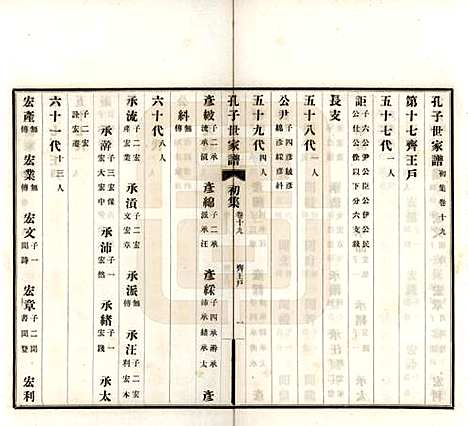 孔子世家譜 初集卷十九
第十七齊王戶
五十七代 一人
詎 子六公尹公臣公伊公民公仕公佐以下分六支敍
長支
五十八代 一人
公尹 子四彥敏彥綿彥綵彥
五十九代 四人
孔子世家譜 初集 卷十九 齊王戶 一
彥敏 子二承流承湏 彥綿 子二承派承汪 彥綵 子四承沛承緒承太 彥
公 無傳
六十代 八人
承流 子二宏產宏業 承湏 子二宏文宏章 承派 無傳 承汪 子二宏利宏本
承 子三宏大宏中 承沛 子一宏然 承緒 子一宏踐 承太
子二宏
六十一代 十三人
宏產 無傳 宏業 無傳 宏文 子一聞詩 宏章 子二聞書聞 宏利